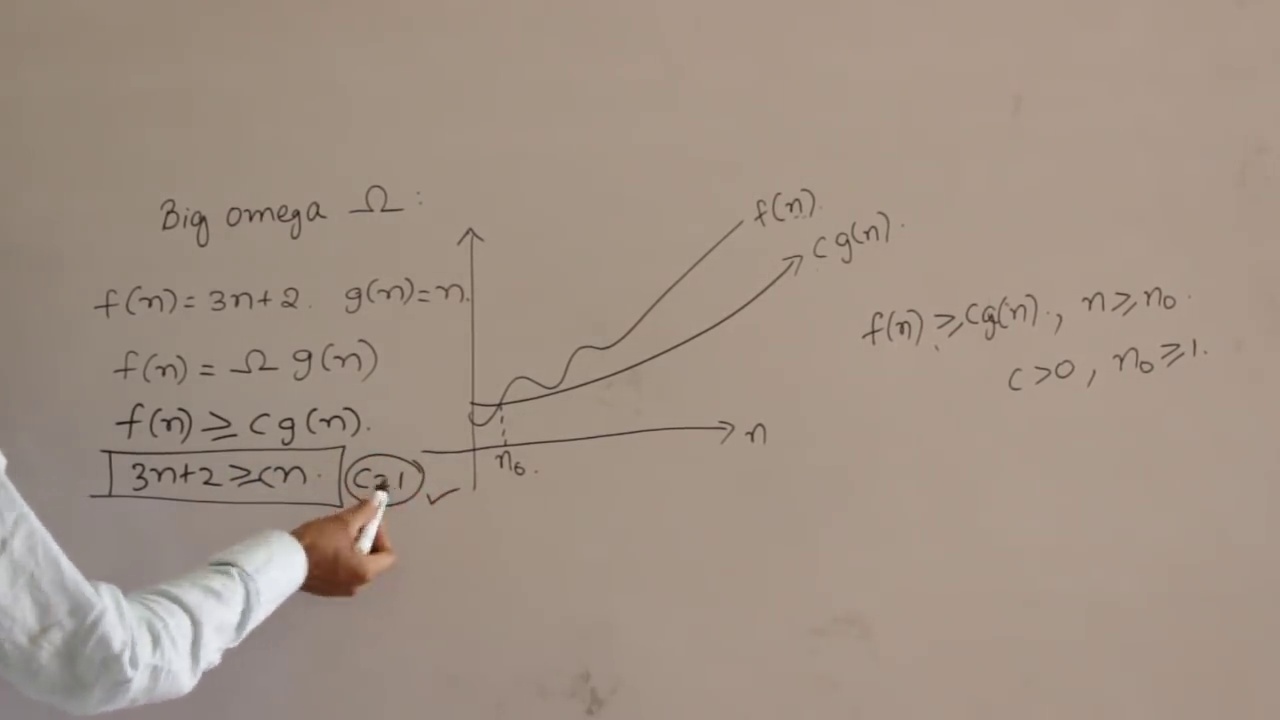 Big omega Ω :
f(n) = 3n+2. g(n)=n.
f(n) = Ω g(n)
f(n) ≥ c g(n).
3n+2 ≥ cn. c=1 ✓
f(n).
c g(n).
n
n₀.
f(n) ≥ cg(n)., n ≥ n₀.
c >0, n₀ ≥ 1.